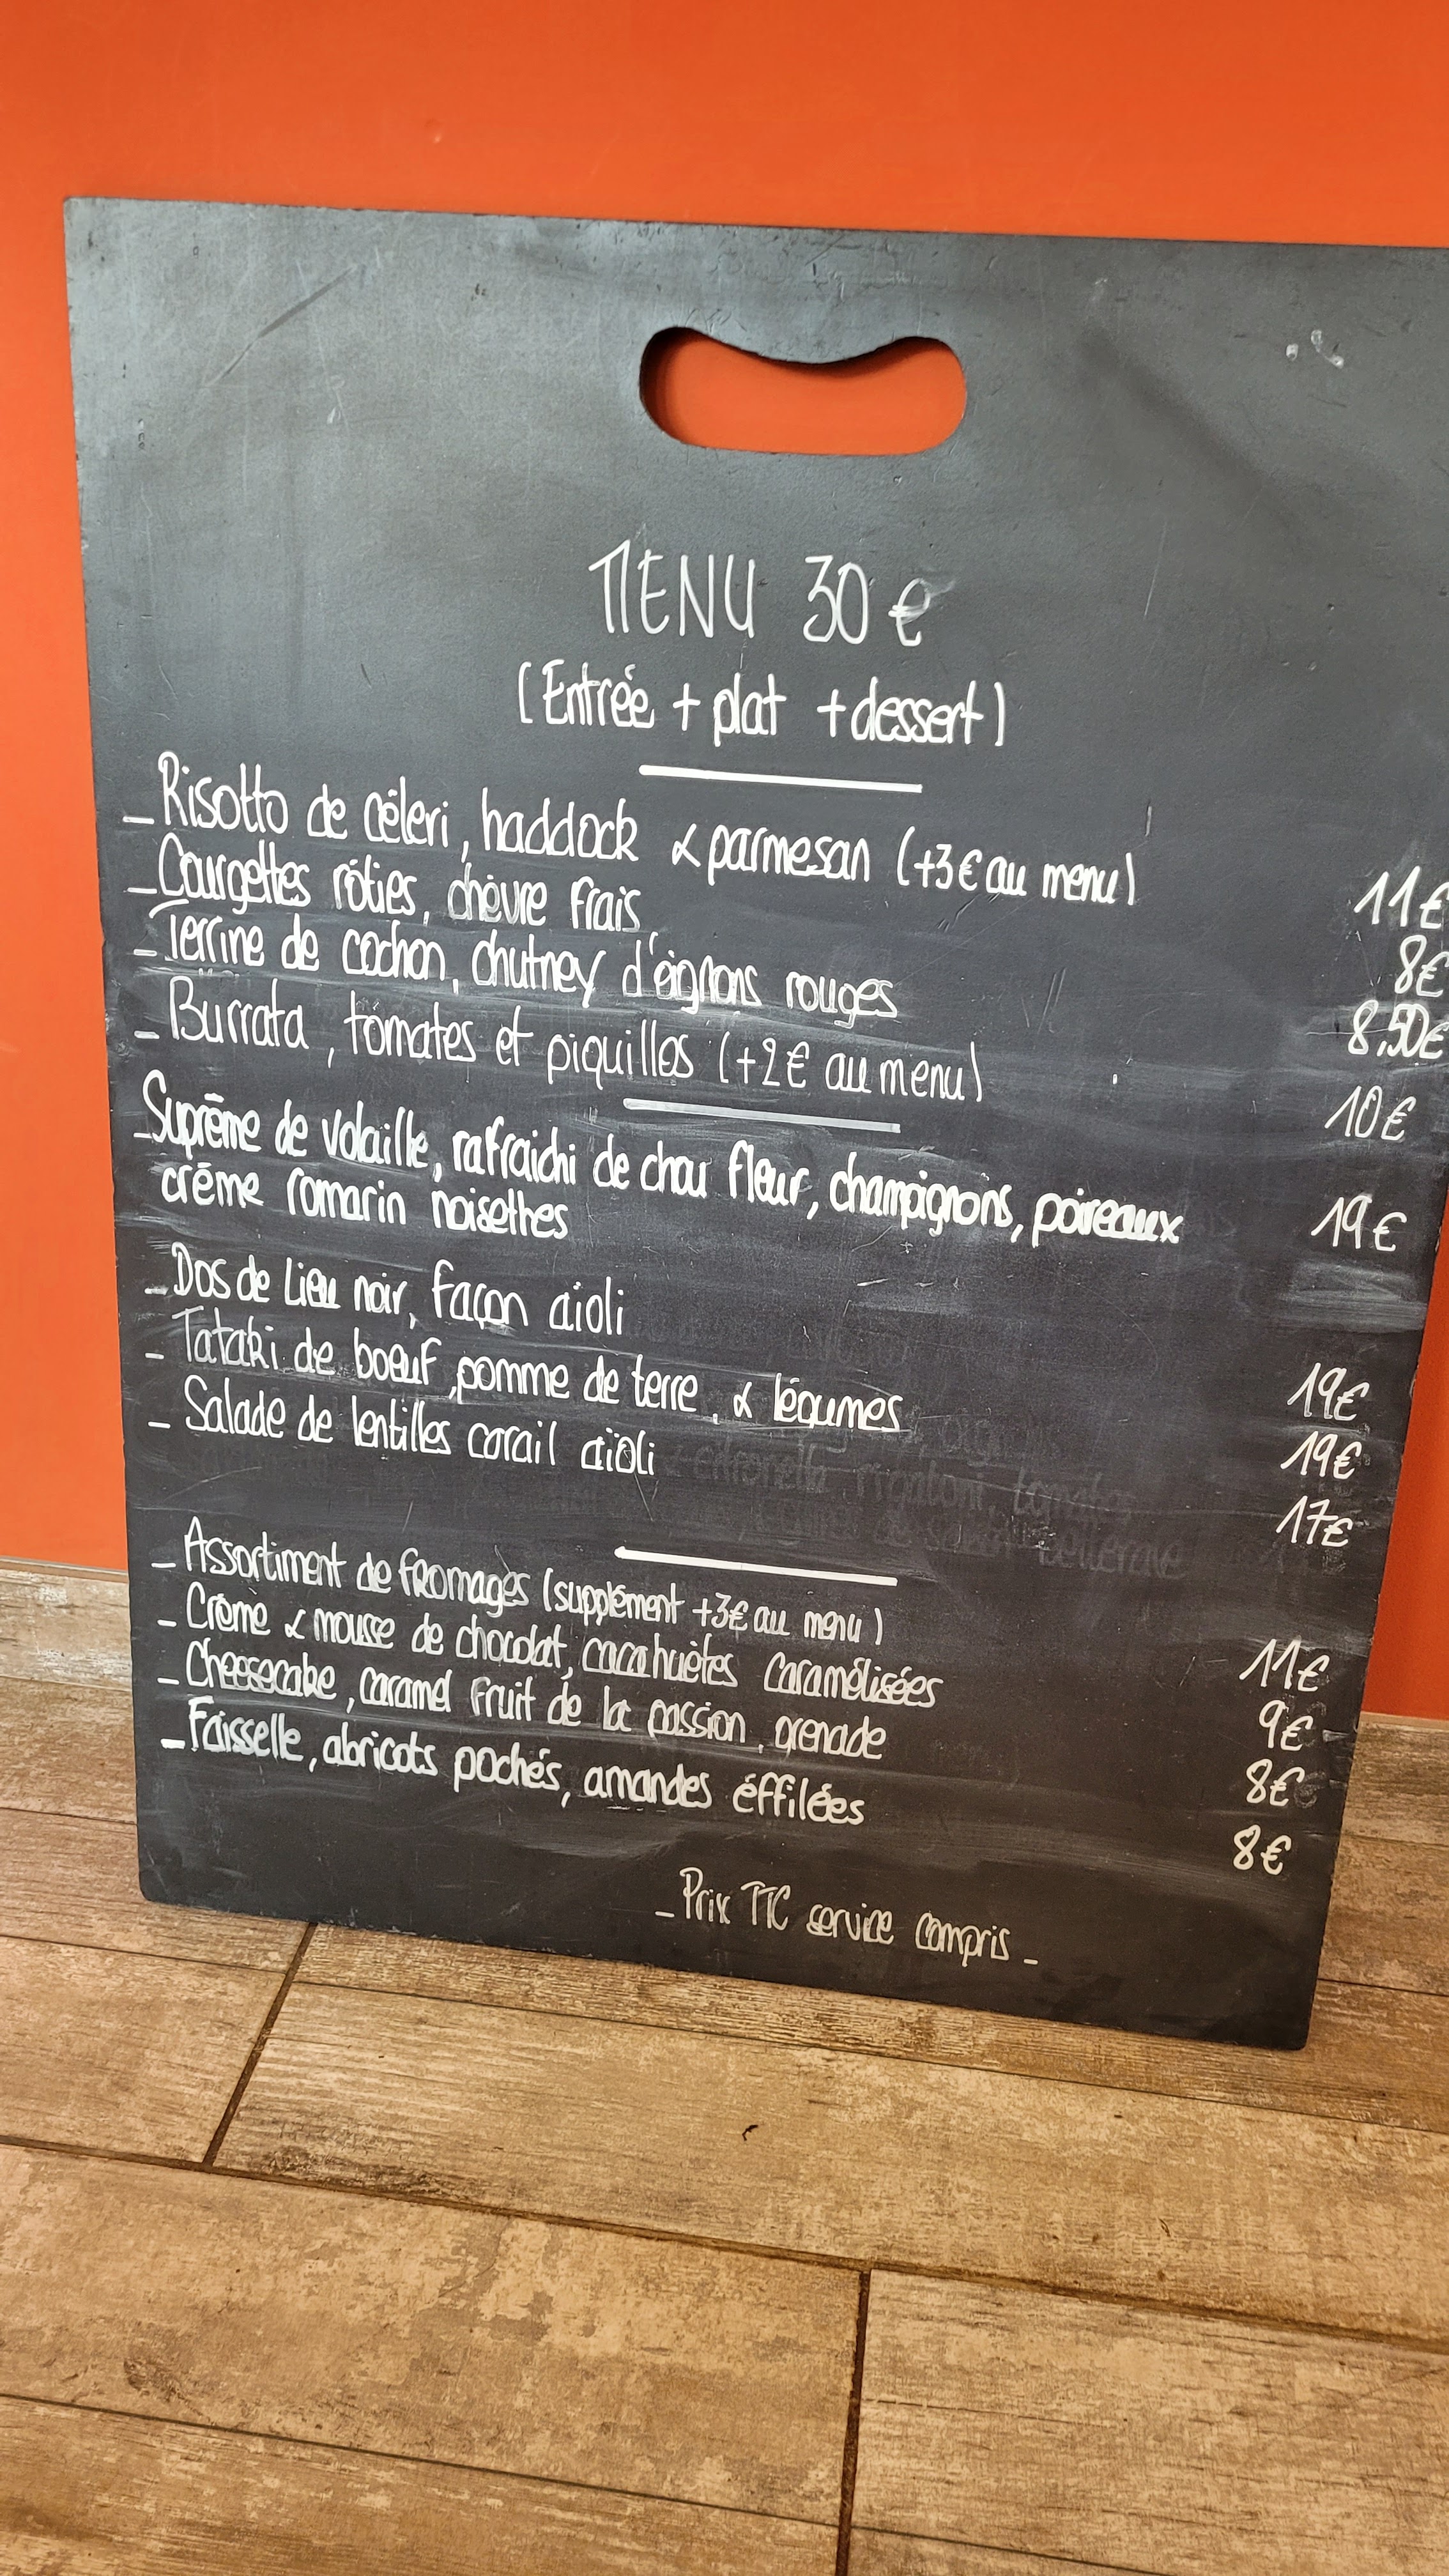 MENU 30€
(Entrée + plat + dessert)
_Risotto de céleri, haddock & parmesan (+3€ au menu) 11€
_Courgettes rôties, chèvre frais 8€
_Terrine de cochon, chutney d'oignons rouges 8,50€
_Burrata, tomates et piquillos (+2€ au menu) 10€
_Suprême de volaille, rafraichi de chou fleur, champignons, poireaux 19€
crème romarin noisettes
_Dos de Lieu noir, façon aïoli 19€
_Tataki de boeuf, pomme de terre, & légumes 19€
_Salade de lentilles corail aïoli 17€
_Assortiment de fromages (supplément +3€ au menu) 11€
_Crème & mousse de chocolat, cacahuètes caramélisées 9€
_Cheesecake, caramel fruit de la passion, grenade 8€
_Faisselle, abricots pochés, amandes éffilées 8€
_Prix TTC service compris_